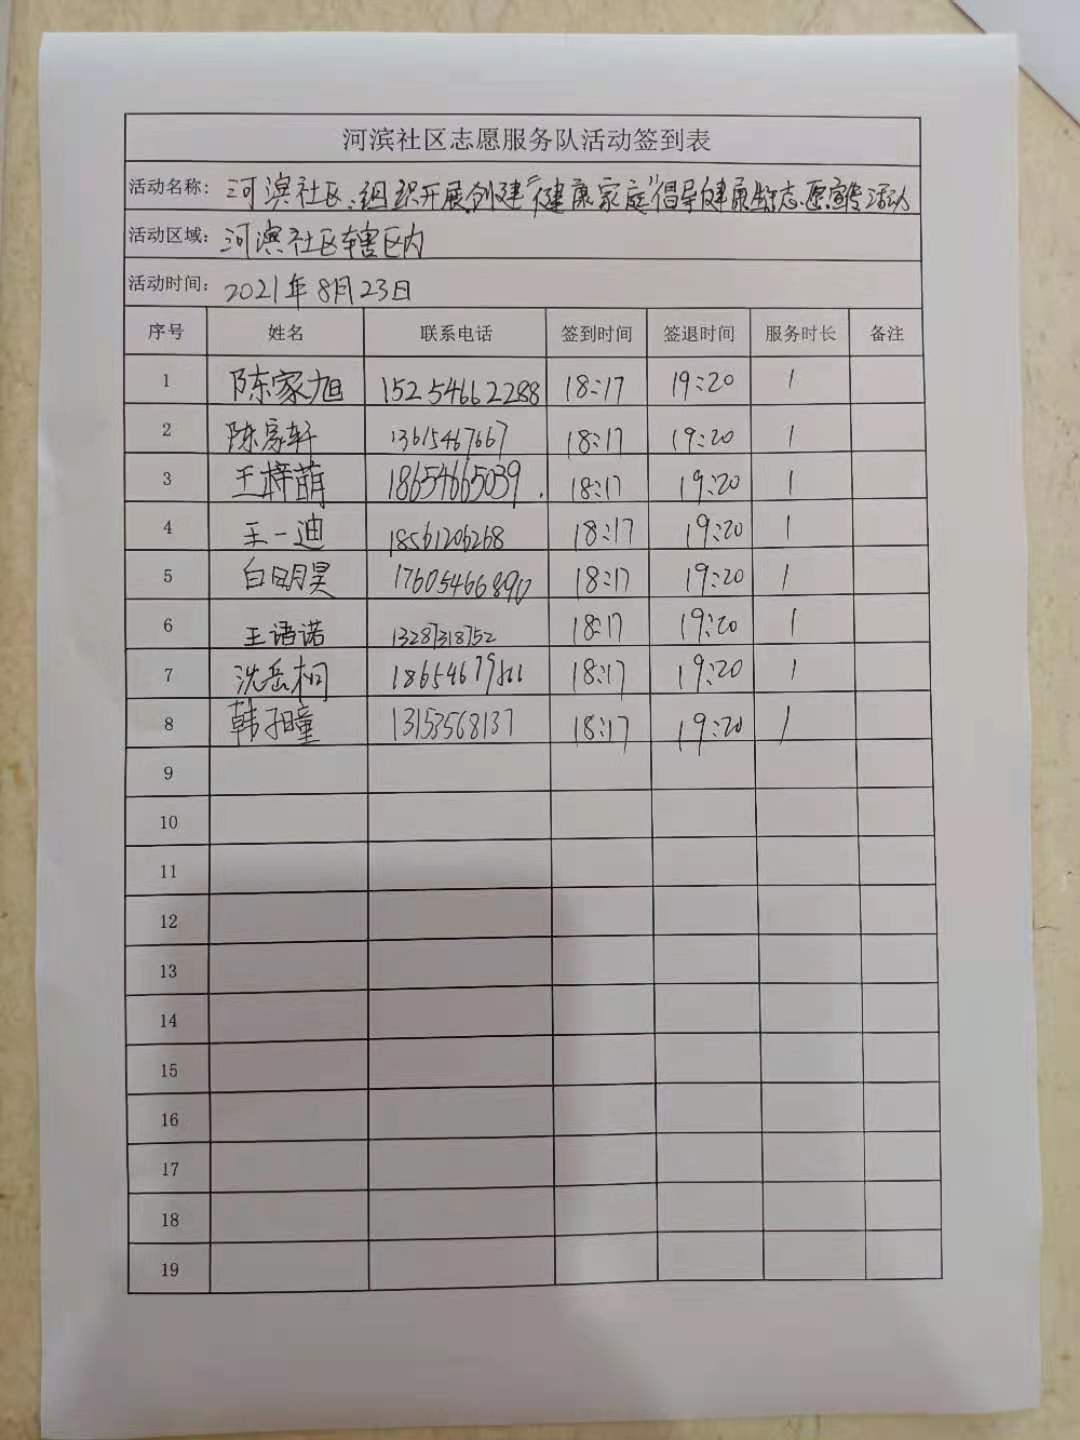 河滨社区志愿服务队活动签到表
活动名称：河滨社区组织开展创建"健康家庭"倡导健康 志愿宣传活动
活动区域：河滨社区辖区内
活动时间：2021年8月23日
序号 姓名 联系电话 签到时间 签退时间 服务时长 备注
1 陈家旭 15254662288 18:17 19:20 1
2 陈家轩 13615467667 18:17 19:20 1
3 王梓萌 18654665039 18:17 19:20 1
4 王一迪 18561206268 18:17 19:20 1
5 白明昊 18:17 19:20 1
6 王语诺 13287318752 18:17 19:20 1
7 沈岳桐 18:17 19:20 1
8 韩子瞳 13153568137 18:17 19:20 1
9
10
11
12
13
14
15
16
17
18
19